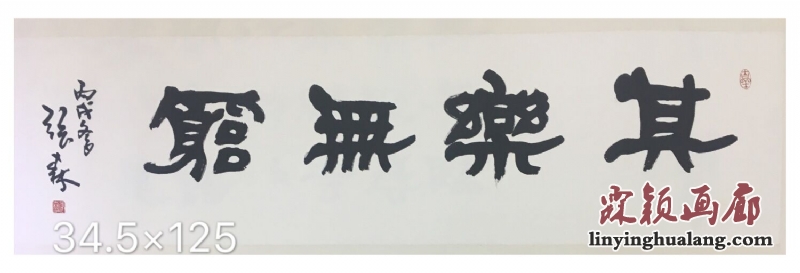 其樂無窮
丙戌冬
張森
34.5×125
霖颖画廊
linyinghualang.com